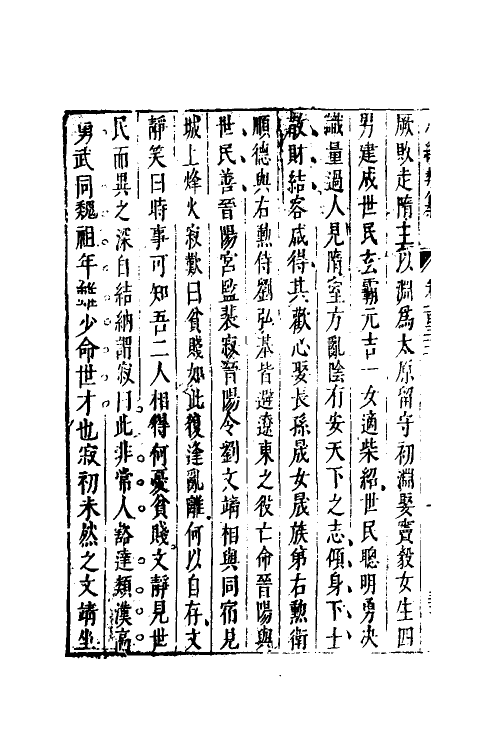 厥敗走隋主以淵爲太原留守初淵娶竇毅女生四
男建成世民玄霸元吉一女適柴紹世民聰明勇决
識量過人見隋室方亂陰有安天下之志傾身下士
散財結客咸得其歡心娶長孫晟女晟族弟右勲衛
順德與右勲侍劉弘基皆避遼東之役亡命晉陽與
世民善晉陽宮監裴寂晉陽令劉文靖相與同宿見
城上烽火寂歎曰貧賤如此復逢亂離何以自存文
靜笑曰時事可知吾二人相得何憂貧賤文靜見世
民而異之深自結納謂寂曰此非常人豁達類漢高
男武同魏祖年雖少命世才也寂初未然之文靖坐